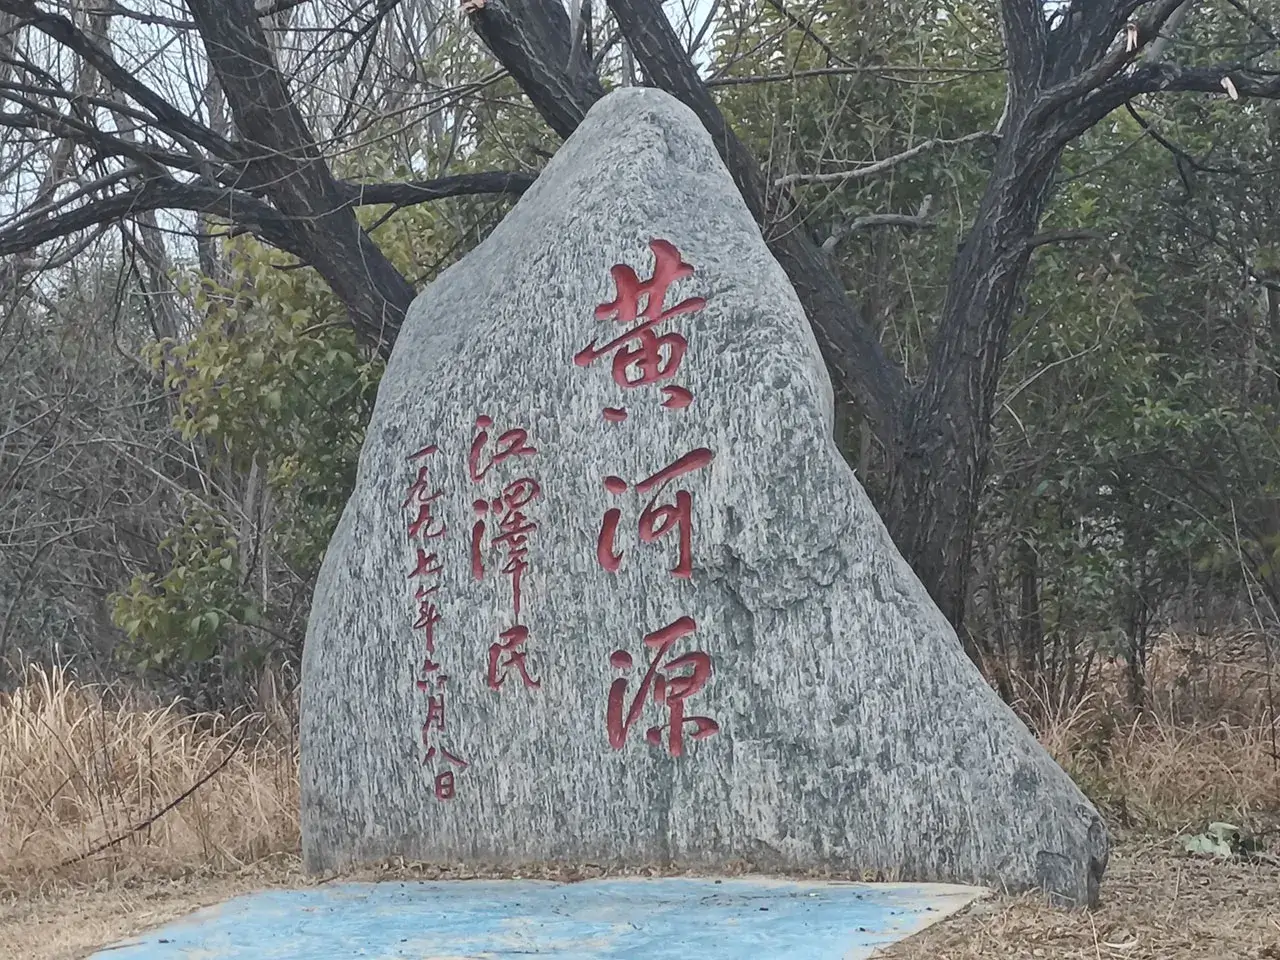 黄河源
江泽民
一九九七年六月八日